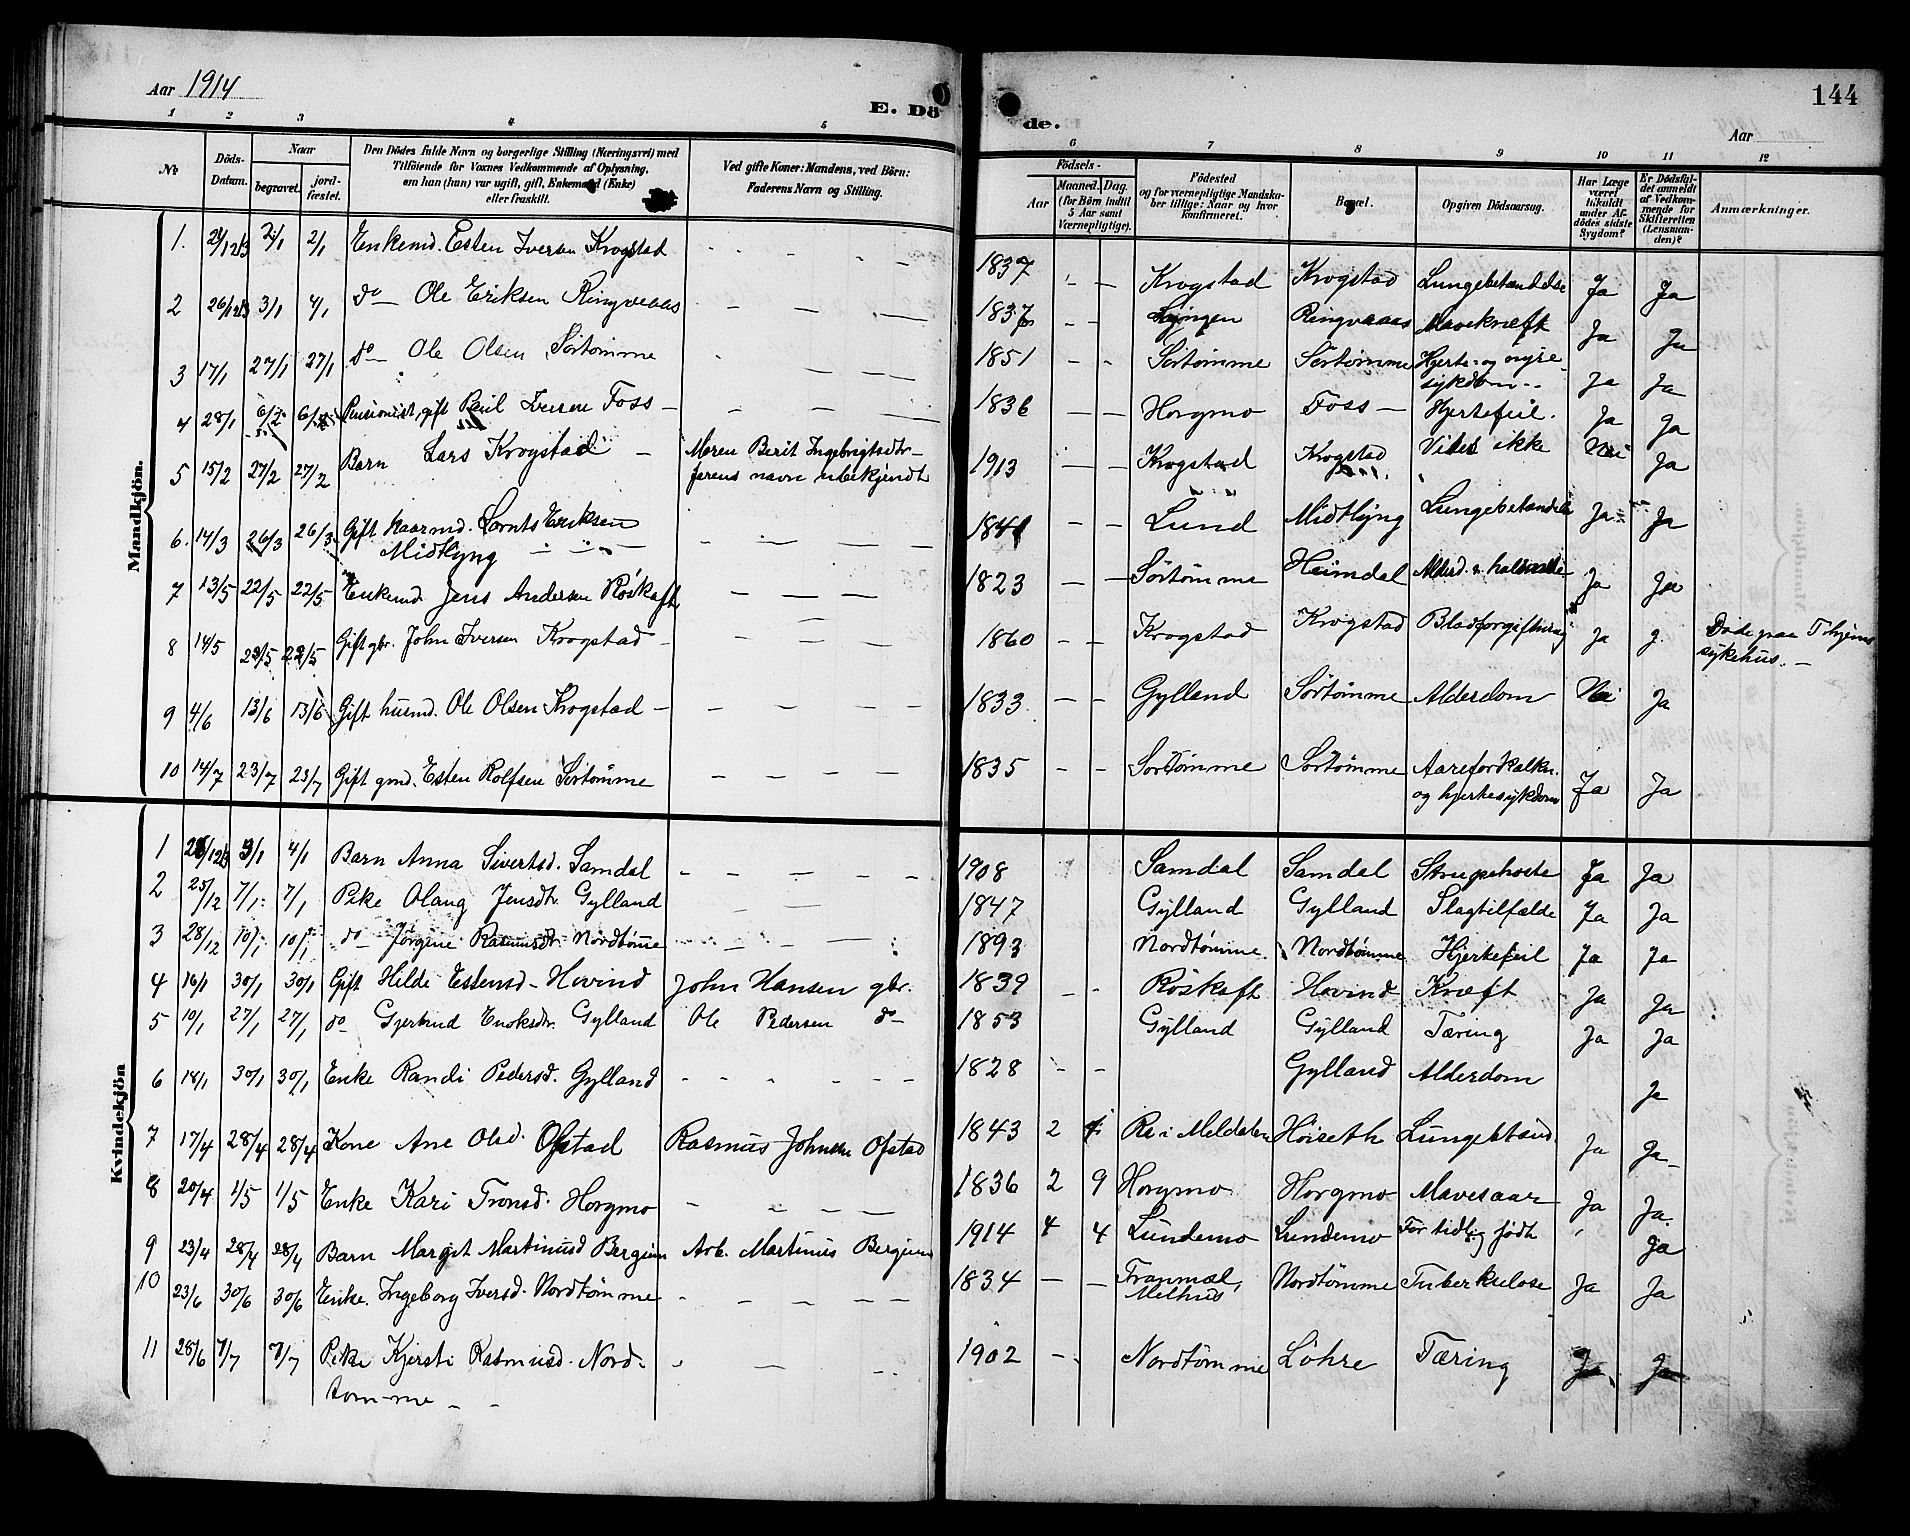 Aar 1914
E. Dö
de.
144
Aar
1 2 3 4 5 6 7 8 9 10 11 12
№ Döds-Datum. Naar begravet. jord-fæstet. Den Dödes fulde Navn og borgerlige Stilling (Næringsvei) med Tilföiende for Voxnes Vedkommende af Oplysning, om han (hun) var ugift, gift, Enkemand (Enke) eller fraskilt. Ved gifte Koner: Mandens, ved Börn: Faderens Navn og Stilling. Födsels- Aar Maaned. Dag. (for Börn indtil 5 Aar samt Værnepligtige). Födested og for værnepligtige Mandskaber tillige: Naar og hvor konfirmeret. Bopæl. Opgiven Dödsaarsag. Har Læge været tilkaldt under Afdödes sidste Sygdom? Er Dödsfaldet anmeldt af Vedkommende for Skifteretten (Lensmanden)? Anmærkninger.
Mandkjön.
1. 2/1 2/1 Enkemd. Esten Iversen Krogstad 1837 Krogstad Krogstad Lungebetændelse Ja Ja
2 26/12 13 3/1 4/1 do Ole Eriksen Ringvaaas 1837 Ringvaaas Mavekræft Ja Ja
3 17/1 27/1 27/1 do Ole Olsen Sörtömme 1851 Sörtömme Sörtömme Hjerte- og nyre-
sykdom Ja Ja
4 28/1 6/2 6/2 Pensionist, gift Paul Iversen Foss 1836 Horgmo Foss Hjertefeil. Ja Ja
5 15/2 27/2 27/2 Barn Lars Krogstad Moren Berit Ingebrigtsdtr 1913 Krogstad Krogstad Vides ikke Nei Ja
farens navn ubekjendt
6. 14/3 26/3 26/3 Gift kaarmd. Lornts Eriksen 1841 Lund Midtlyng Lungebetændelse Ja Ja
Midtlyng
7 13/5 22/5 22/5 Enkemd. Jens Andersen Röskaft 1823 Sörtömme Heimdal Ja Ja
8 14/5 22/5 22/5 Gift gbr. John Iversen Krogstad 1860 Krogstad Krogstad Blodforgiftning Ja J. Döde paa T.hjems
sykehus.
9 4/6 13/6 13/6 Gift husmd. Ole Olsen Krogstad 1833 Gylland Sörtömme Alderdom Nei Ja
10 14/7 23/7 23/7 Gift gmd. Esten Rolfsen Sörtömme 1835 Sörtömme Sörtömme Aareforkalkn.
og hjertesykdom Ja Ja
Kvindekjön
1 3/1 4/1 Barn Anna Sivertsd. Samdal 1908 Samdal Samdal Strupehoste Ja Ja
2 25/12 7/1 7/1 Pike Olaug Jensdtr. Gylland 1847 Gylland Gylland Slagtilfælde Ja Ja
3 28/12 10/1 10/1 do Jörgine Rasmusdtr. Nordtömme 1893 Nordtömme Nordtömme Hjertefeil Ja Ja
4 16/1 30/1 30/1 Gift Hilde Estensd. Hovind John Hansen gbr. 1839 Röskaft Hovind Kræft Ja Ja
5 10/1 27/1 27/1 do Gjertrud Enoksdtr. Gylland Ole Pedersen do 1853 Gylland Gylland Tæring Ja Ja
6 18/1 30/1 30/1 Enke Randi Pedersd. Gylland 1828 Gylland Alderdom Ja
7 17/4 28/4 28/4 Kone Ane Olsd. Ofstad Rasmus Johnsen Ofstad 1843 2 Ra i Meldalen Höiseth Lungebtænd. Ja Ja
8 20/4 1/5 1/5 Enke Kari Tronsd. Horgmo 1836 2 9 Horgmo Horgmo Mavesaar Ja Ja.
9 23/4 28/4 28/4 Barn Margit Martinusd Bergem Arb. Martinus Bergem 1914 4 4 Lundemo Lundemo For tidlig födt Ja
10 23/6 30/6 30/6 Enke. Ingeborg Iversd. Nordtömme 1834 Tranmæl, Nordtömme Tuberkulose Ja Ja
Melhus
11 28/6 7/7 7/7 Pike Kjersti Rasmusd. Nord- 1902 Nordtömme Löhre Tæring Ja Ja
tömme